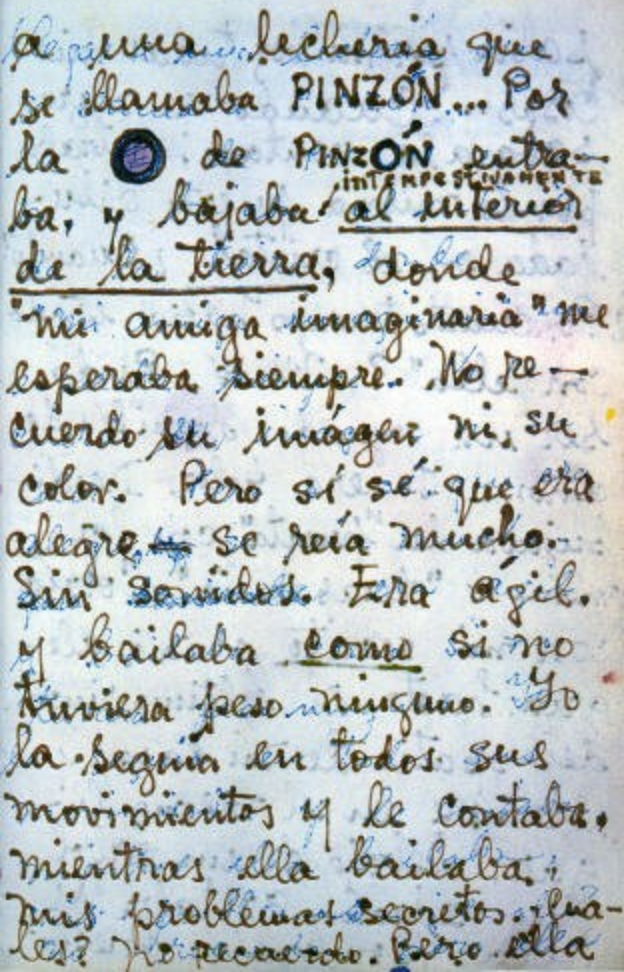 a una lecheria que
se llamaba PINZÓN... Por
la O de PINZÓN entra-
intempestivamente
ba, y bajaba al interior
de la tierra, donde
"mi amiga imaginaria" me
esperaba siempre. No re-
cuerdo su imágen ni su
color. Pero sí sé que era
alegre - se reía mucho.
Sin sonidos. Era ágil.
y bailaba como si no
tuviera peso ninguno. Yo
la seguia en todos sus
movimientos y le contaba,
mientras ella bailaba,
mis problemas secretos. Cua-
les? No recuerdo. Pero ella